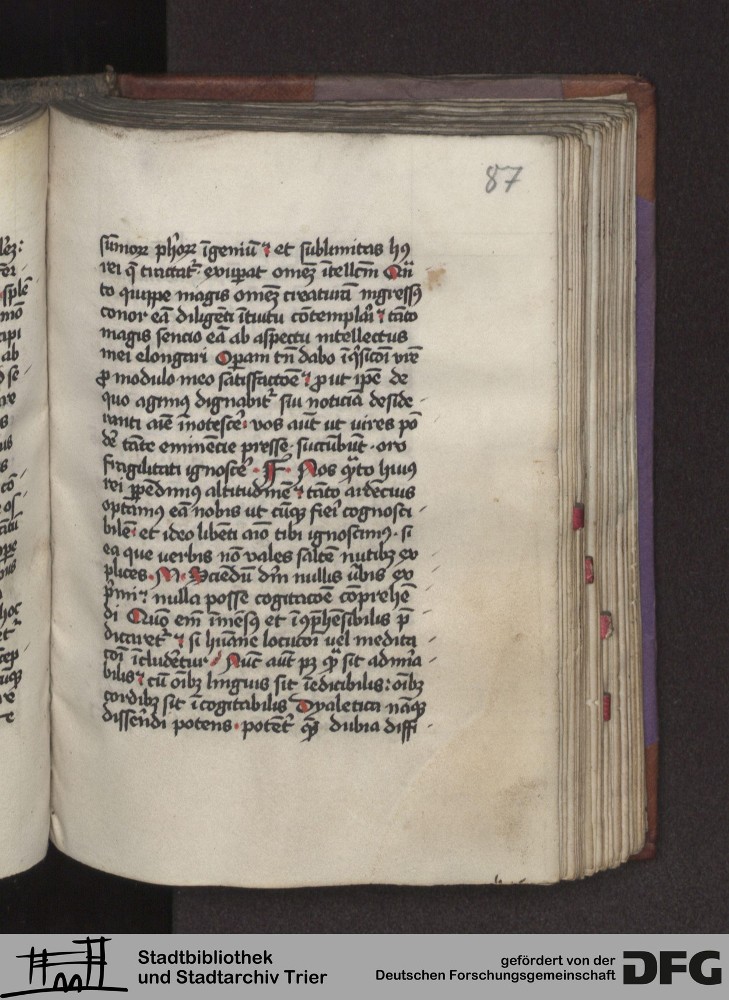 87
sūmoꝝ ph̄oꝝ īgeniū et sublimitas hꝰ
rei q̄ tractat᷑ exuꝑat omēꝫ ītellcm̄ Quā
to quippe magis omēꝫ creaturā ingressꝰ
conor eā diligēti ītuitu cōtemplāi tāto
magis sencio eā ab aspectu intellectus
mei elongari Oꝑam tn̄ dabo īq̄sicōi vrē
ꝓ modulo meo satisfactōē ꝓut ipē de
quo agimꝰ dignabit᷑ sui noticiā deside
ranti aīe īnotescē vos aūt ut vires pō
dē tāte eminēcie presse succūbūt oro
fragilitati ignoscē F Nos q̄to huius
rei ꝑpēdimꝰ altitudinē tāto ardecius
optamꝰ eā nobis ut cūqꝫ fiei cognosci
bilē et ideo libēti aīo tibi ignoscimꝰ si
ea que verbis nō vales saltē nutibꝫ ex
plices M Sciēdū dīm nullis ūbis ex
p̄mi nulla posse cogitacōe cōprehē
di Quō em̄ īmēsꝰ et īꝯp̄hēsibilis p̄
dicaret᷑ si hūane locucōi vel medita
cōi īcludēret᷑ Nūc aūt pꝫ q̄ sit admīa
bilis cū oībꝫ linguis sit īedicibilis oībꝫ
cordibꝫ sit īcogitabilis Dyaletica nāqꝫ
dissērdi potens potēt᷑ q̄s dubia diffi
Stadtbibliothek
und Stadtarchiv Trier
gefördert von der
Deutschen Forschungsgemeinschaft
DFG